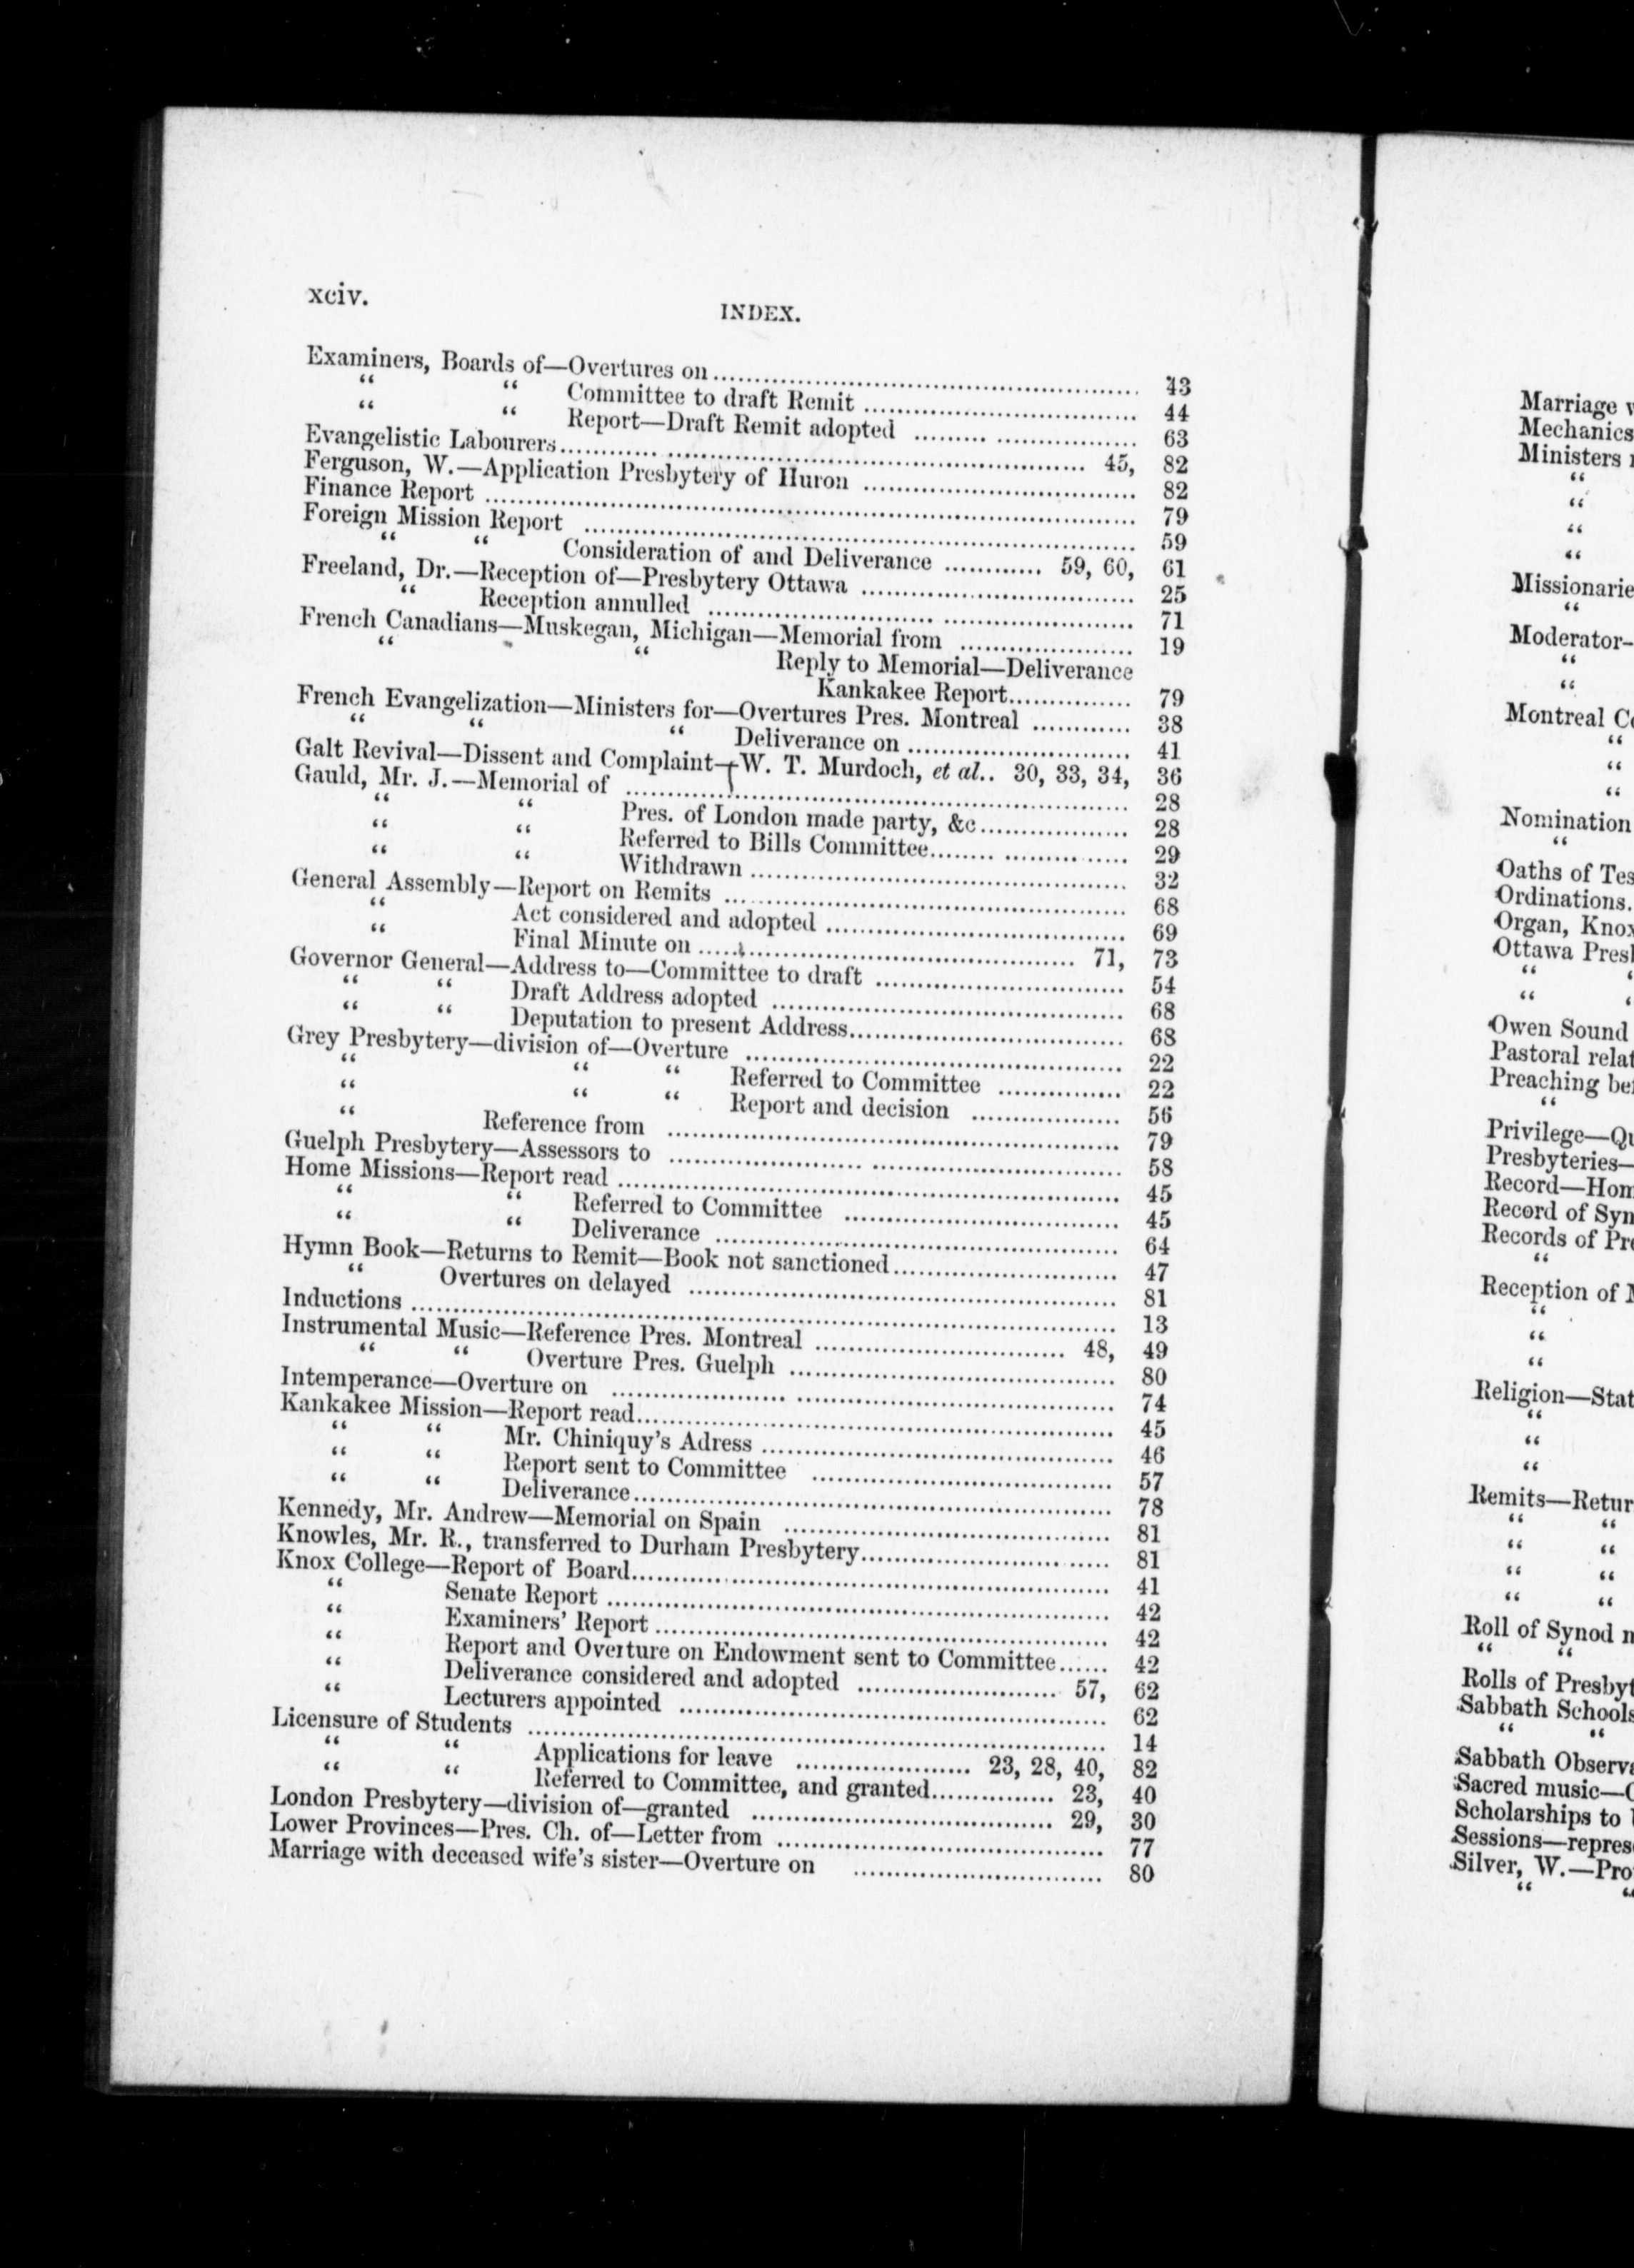 xciv.
INDEX.
Examiners, Boards of—Overtures on ........ 43
“ “ Committee to draft Remit ........ 44
“ “ Report—Draft Remit adopted ........ 63
Evangelistic Labourers ........ 45, 82
Ferguson, W.—Application Presbytery of Huron ........ 82
Finance Report ........ 79
Foreign Mission Report ........ 59
“ “ Consideration of and Deliverance ........ 59, 60, 61
Freeland, Dr.—Reception of—Presbytery Ottawa ........ 25
“ Reception annulled ........ 71
French Canadians—Muskegan, Michigan—Memorial from ........ 19
“ “ Reply to Memorial—Deliverance
Kankakee Report ........ 79
French Evangelization—Ministers for—Overtures Pres. Montreal ........ 38
“ “ “ Deliverance on ........ 41
Galt Revival—Dissent and Complaint—W. T. Murdoch, et al.. 30, 33, 34, 36
Gauld, Mr. J.—Memorial of ........ 28
“ “ Pres. of London made party, &c ........ 28
“ “ Referred to Bills Committee ........ 29
“ “ Withdrawn ........ 32
General Assembly—Report on Remits ........ 68
“ Act considered and adopted ........ 69
“ Final Minute on ........ 71, 73
Governor General—Address to—Committee to draft ........ 54
“ “ Draft Address adopted ........ 68
“ “ Deputation to present Address ........ 68
Grey Presbytery—division of—Overture ........ 22
“ “ “ Referred to Committee ........ 22
“ “ “ Report and decision ........ 56
“ Reference from ........ 79
Guelph Presbytery—Assessors to ........ 58
Home Missions—Report read ........ 45
“ “ Referred to Committee ........ 45
“ “ Deliverance ........ 64
Hymn Book—Returns to Remit—Book not sanctioned ........ 47
“ Overtures on delayed ........ 81
Inductions ........ 13
Instrumental Music—Reference Pres. Montreal ........ 48, 49
“ “ Overture Pres. Guelph ........ 80
Intemperance—Overture on ........ 74
Kankakee Mission—Report read ........ 45
“ “ Mr. Chiniquy's Adress ........ 46
“ “ Report sent to Committee ........ 57
“ “ Deliverance ........ 78
Kennedy, Mr. Andrew—Memorial on Spain ........ 81
Knowles, Mr. R., transferred to Durham Presbytery ........ 81
Knox College—Report of Board ........ 41
“ Senate Report ........ 42
“ Examiners' Report ........ 42
“ Report and Overture on Endowment sent to Committee ...... 42
“ Deliverance considered and adopted ........ 57, 62
“ Lecturers appointed ........ 62
Licensure of Students ........ 14
“ “ Applications for leave ........ 23, 28, 40, 82
“ “ Referred to Committee, and granted ........ 23, 40
London Presbytery—division of—granted ........ 29, 30
Lower Provinces—Pres. Ch. of—Letter from ........ 77
Marriage with deceased wife's sister—Overture on ........ 80
Marriage
Mechanics
Ministers
“
“
“
“
Missionarie
“
Moderator-
“
“
Montreal
“
“
“
Nomination
“
Oaths of
Ordinations.
Organ,
Ottawa
“
“
Owen Sound
Pastoral
Preaching
“
Privilege—
Presbyteries—
Record—
Record of
Records of
“
Reception of
“
“
“
Religion—
“
“
“
Remits—
“ “
“ “
“ “
“ “
Roll of Synod
“ “
Rolls of
Sabbath
“ “
Sabbath
Sacred music—
Scholarships to
Sessions—
Silver, W.—
“